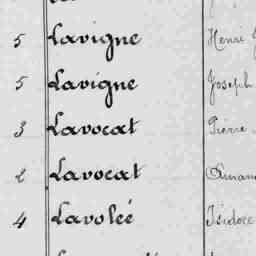 5 Lavigne Henri
5 Lavigne Joseph
3 Lavocat Pierre
2 Lavocat
4 Lavoleé Isidore